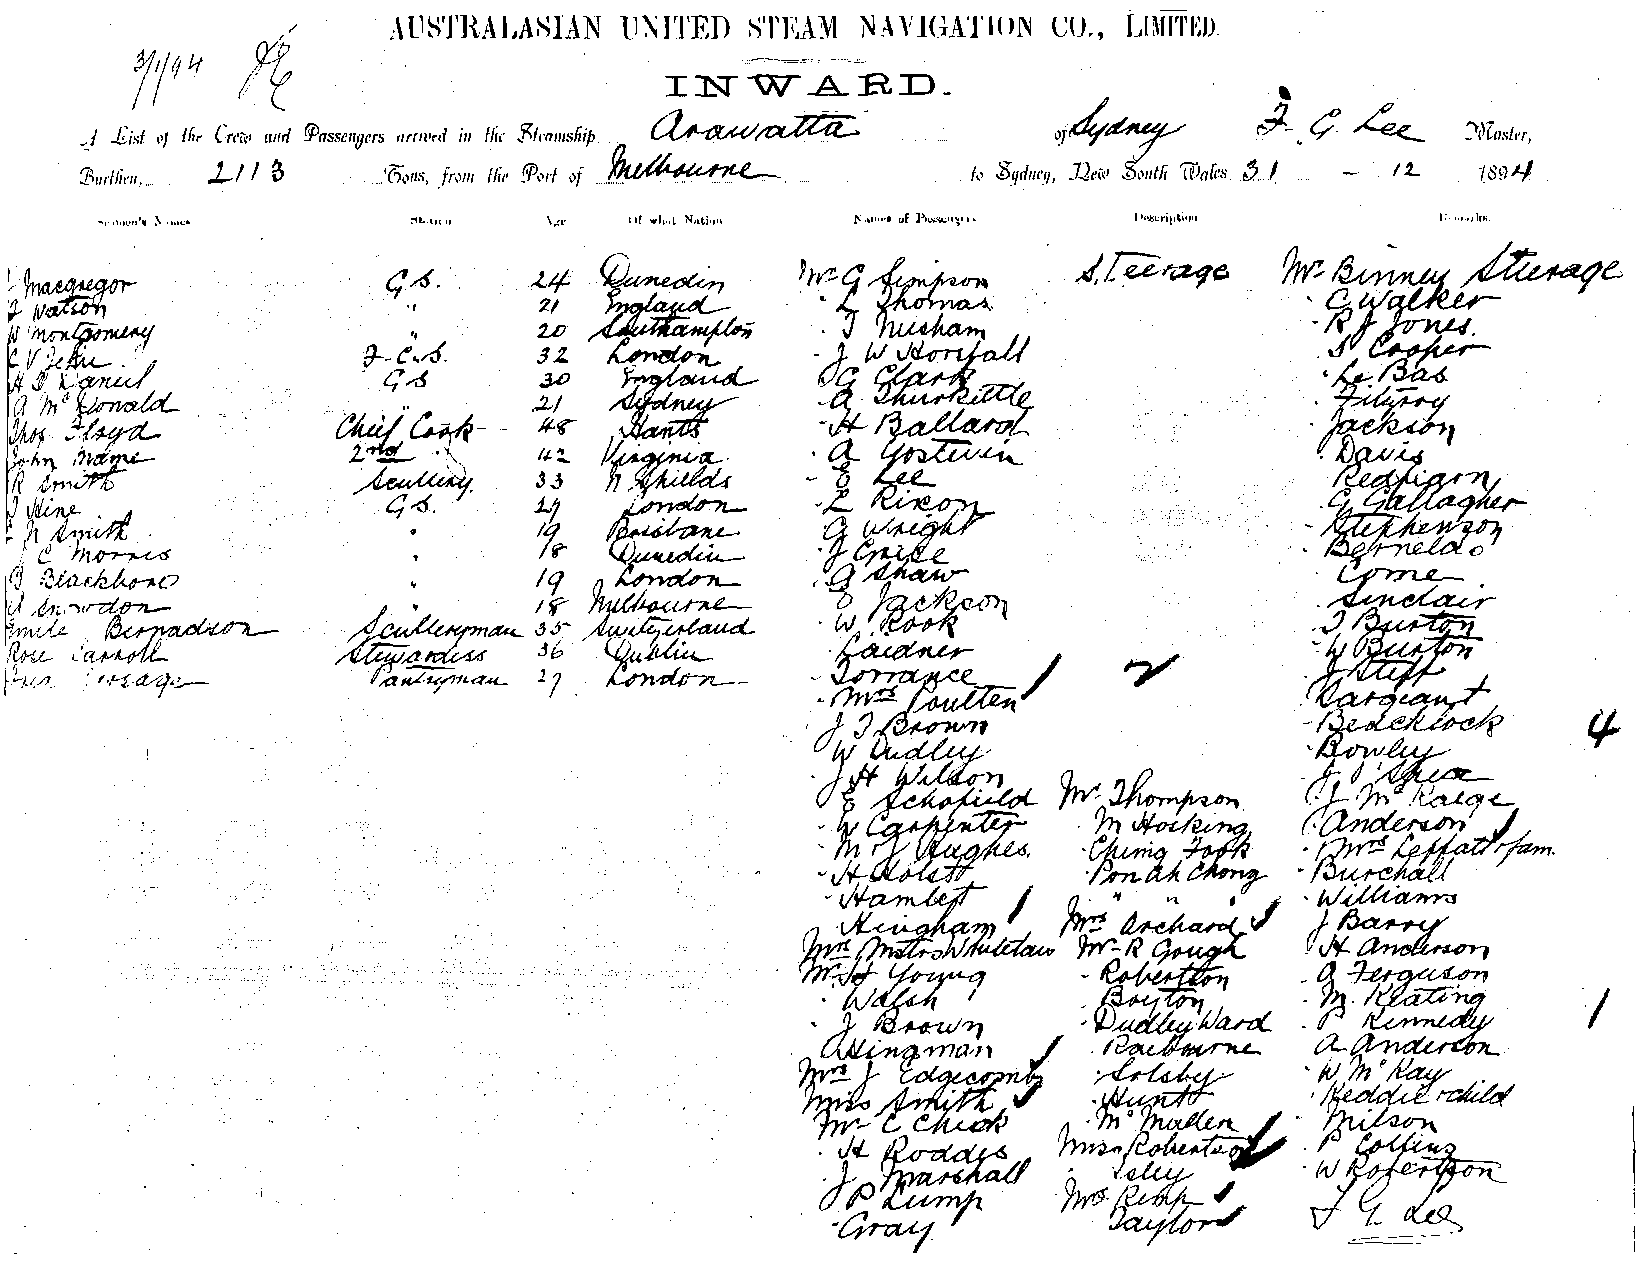 AUSTRALASIAN UNITED STEAM NAVIGATION CO., LIMITED.
3/1/94
INWARD.
A List of the Crew and Passengers arrived in the Steamship Arawatta of Sydney F. G. Lee Master,
Burthen, 2113 Tons, from the Port of Melbourne to Sydney, New South Wales 31 - 12 1894
Seamen's Names Station Age Of what Nation Names of Passengers Description Remarks.
Macgregor G.S. 24 Dunedin
J Watson " 21 England
W Montgomery " 20 Southampton
F.C.S. 32 London
G S 30 England
A McDonald " 21 Sydney
Thos Floyd Chief Cook 48 Hants
John Mame 2nd " 42 Virginia
R Smith Scullery. 33 N Shields
J Hine G.S. 27 London
N Smith " 19 Brisbane
C Morris " 18 Dunedin
Blackbone " 19 London
Snowdon " 18 Melbourne
Emile Bernadson Sculleryman 35 Switzerland
Rose Carroll Stewardess 36 Dublin
Pantryman 27 London
Mr G Simpson Steerage
" L Thomas
" T Nusham
" J W Horsfall
" G Clark
" A Thurkettle
" H Ballard
" A Gostwin
" E Lee
" L Rixon
" G Wright
" J Craze
" G Shaw
" E Jackson
" W. Rook
" Gardner
" Torrance
" Mrs Poulten
" J T Brown
" W Dudley
" J H Wilson
" E Schofield
" W Carpenter
" M J Hughes.
" H Holst
" Hambly
" Hingham
Mrs Mstrs Whitelaw
Mr H Young
" Walsh
" J Brown
" Hingman
Mrs J Edgecombe
Miss Smith
Mr C Chick
" H Roddis
" J Marshall
" P Lump
" Gray
2
Mr Thompson
" M Hocking
" Ching Fook
" Pon Ah Chong
" " "
Mrs Archard
Mr R Gough
" Robertson
" Boyton
" Dudley Ward
" Raebourne
" Solsby
" Hunt
" McMaden
Miss Robertson
" Isley
Mrs Kemp
" Taylor
Mr Binney Steerage
" C Walker
" R J Jones.
" S Cooper
" Le Bas
" Fitzroy
" Jackson
" Davis
" Redfearn
" G Gallagher
" Stephenson
" Berneldo
" Come
" Sinclair
" T Burton
" W Burton
" J Stift
" Sargeant
" Beacklock 4
" Rowley
" J O'Shea
" J McKaige
" Anderson
" Mrs Leffatt & fam.
" Burchall
" Williams
" J Barry
" H Anderson
" G Ferguson
" M. Keating
" P Kennedy 1
" A Anderson
" W McKay
" Keddie & child
" Milson
" P Collins
" W Robertson
F G Lee